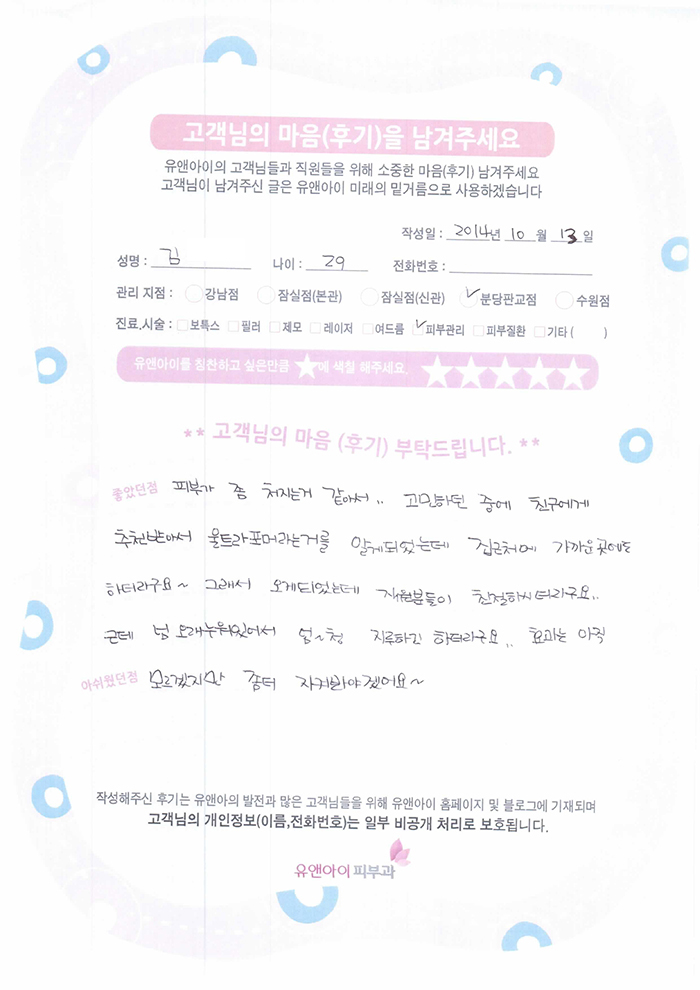 고객님의 마음(후기)을 남겨주세요
유앤아이의 고객님들과 직원들을 위해 소중한 마음(후기) 남겨주세요
고객님이 남겨주신 글은 유앤아이 미래의 밑거름으로 사용하겠습니다
작성일 : 2014년 10 월 13 일
성명 : 김 나이 : 29 전화번호 :
관리 지점 : 강남점 잠실점(본관) 잠실점(신관) 분당판교점 수원점
진료,시술 : 보톡스 필러 제모 레이저 여드름 피부관리 피부질환 기타 ( )
유앤아이를 칭찬하고 싶은만큼 ★에 색칠 해주세요. ★★★★★
** 고객님의 마음 (후기) 부탁드립니다. **
좋았던점 피부가 좀 처지는거 같아서.. 고민하던 중에 친구에게
추천받아서 울트라포머라는거를 알게되었는데 집근처에 가까운곳에도
하더라구요~ 그래서 오게되었는데 직원분들이 친절하시더라구요..
근데 넘 오래누워있어서 엄~청 지루하긴 하더라구요.. 효과는 아직
아쉬웠던점 모르겠지만 좀더 지켜봐야겠어요~
작성해주신 후기는 유앤아의 발전과 많은 고객님들을 위해 유앤아이 홈페이지 및 블로그에 기재되며
고객님의 개인정보(이름,전화번호)는 일부 비공개 처리로 보호됩니다.
유앤아이피부과